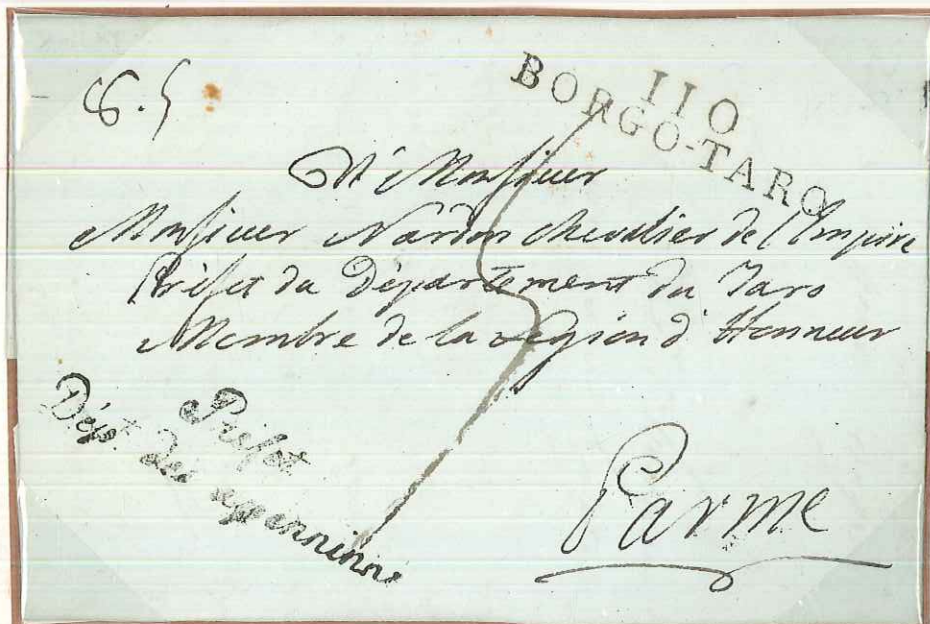 110
BORGO-TARO
A Monsieur
Monsieur Nardon Chevalier de l'Empire
Préfet du Département du Taro
Membre de la Légion d'Honneur
Préfet
Dépt. des appennins
Parme